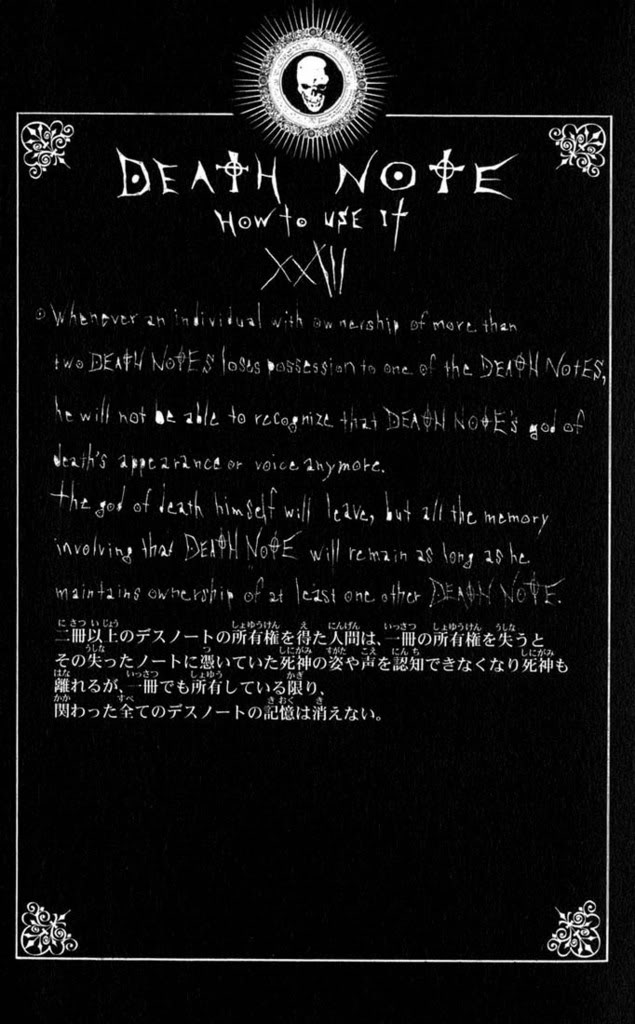 DEATH NOTE
HOW to USE It
XXIII
Whenever an individual with ownership of more than
two DEATH NOTES loses possession to one of the DEATH NOTES,
he will not be able to recognize that DEATH NOTE's god of
death's appearance or voice anymore.
the god of death himself will leave, but all the memory
involving that DEATH NOTE will remain as long as he
maintains ownership of at least one other DEATH NOTE.
二冊以上のデスノートの所有権を得た人間は、一冊の所有権を失うと
その失ったノートに憑いていた死神の姿や声を認知できなくなり死神も
離れるが、一冊でも所有している限り、
関わった全てのデスノートの記憶は消えない。